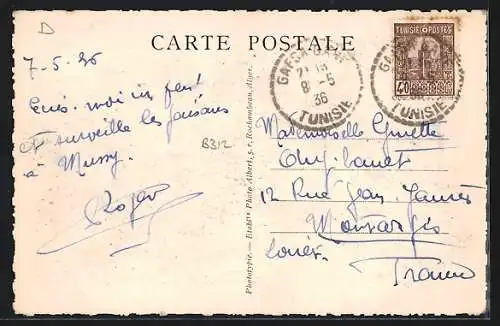 D
CARTE POSTALE
7-5-36
Ecris-moi un peu!
et surveille les faisans
à Mussy
Roger
B312
Phototypie. — Etablts Photo Albert, s. r. Rochambeau, Alger.
GAFSA
21
8-5
36
TUNISIE
TUNISIE POSTES
40
GAFSA
TUNISIE
Mademoiselle Ginette
12 Rue Jean Jaurès
Montargis
Loiret
France